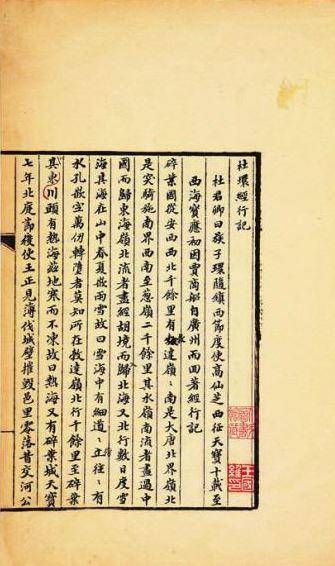 杜環經行記
杜君卿曰族子環隨鎮西節度使高仙芝西征天寶十載至
西海寶應初因賈商船自廣州而回著經行記
碎葉國從安西西北千餘里有勃達嶺〻南是大唐北界嶺北
是突騎施南界西南至葱嶺二千餘里其水嶺南流者盡過中
國而歸東海嶺北流者盡經胡境而歸北海又北行數日度雪
海其海在山中春夏雨雪故曰雪海中有細道〻往〻有
水孔嵌空萬仞轉墮者莫知所在勃達嶺北行千餘里至碎葉
其東川頭有熱海茲地寒而不凍故曰熱海又有碎葉城天寶
七年北庭節度使王正見薄伐城壁摧毀邑里零落昔交河公
王國維印